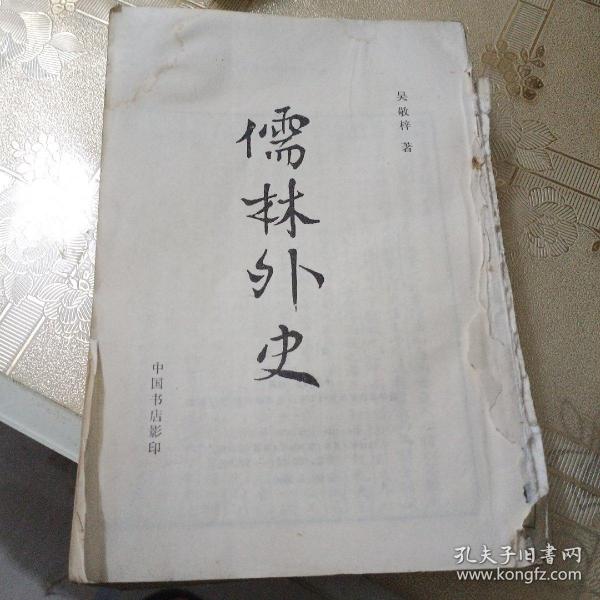 吴敬梓 著
儒林外史
中国书店影印
孔夫子旧书网
www.kongfz.com